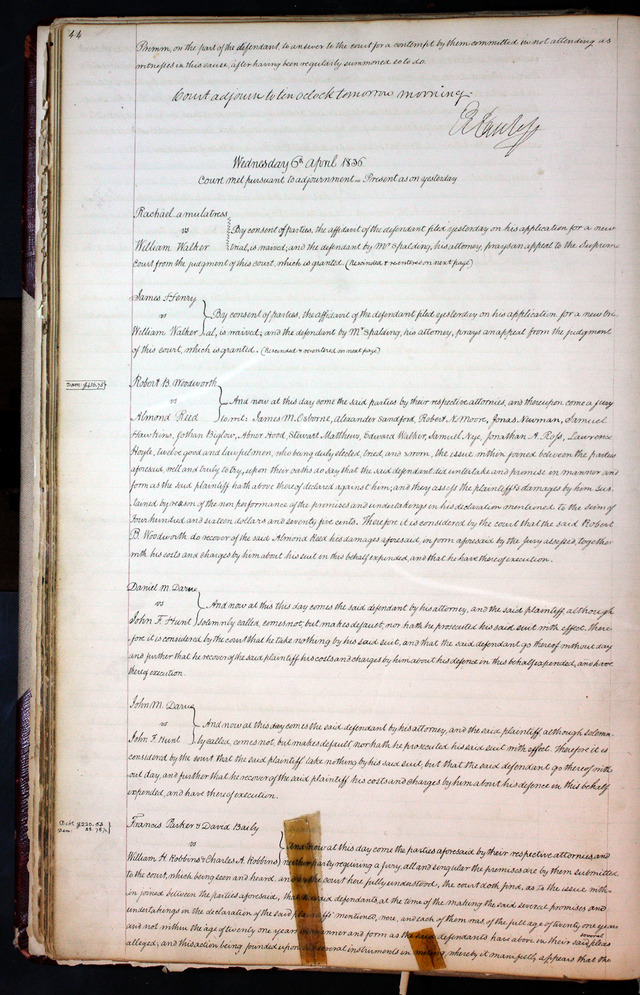 44
Primm, on the part of the defendant, to answer to the court for a contempt by them committed in not attending as
witnesses in this cause, after having been regularly summoned so to do.
Court adjourn to ten oclock tomorrow morning.
Wednesday 6th April 1836
Court met pursuant to adjournment - Present as on yesterday
Rachael a mulatress
vs
By consent of parties, the affidavit of the defendant filed yesterday on his application for a new
William Walker trial, is waived; and the defendant by Mr Spalding, his attorney, prays an appeal to the Supreme
Court from the judgment of this court, which is granted. (Rescinded & reentered on next page)
James Henry
vs
By consent of parties, the affidavit of the defendant filed yesterday on his application for a new tri
William Walker al, is waived; and the defendant by Mr Spalding, his attorney, prays an appeal from the judgment
of this court, which is granted. (Rescinded & reentered on next page)
Dam: $416.75
Robert B. Woodworth
vs
And now at this day come the said parties by their respective attornies, and thereupon come a jury
Almond Reed to wit: James M. Osborne, Alexander Sandford, Robert N. Moore, Jonas Newman, Samuel
Hawkins, Jothan Biglow, Abner Hood, Stewart Matthews, Edward Walker, Samuel Nye, Jonathan A. Ross, Lawrence
Hoyle, twelve good and lawful men, who being duly elected, tried, and sworn, the issue within joined between the parties
aforesaid, well and truly to try, upon their oaths do say that the said defendant did undertake and promise in manner and
form as the said plaintiff hath above thereof declared against him; and they assess the plaintiff's damages by him sus
tained by reason of the non performance of the promises and undertakings in his declaration mentioned to the sum of
four hundred and sixteen dollars and seventy five cents. Therefore it is considered by the court that the said Robert
B. Woodworth do recover of the said Almond Reed his damages aforesaid, in form aforesaid by the Jury assessed, together
with his costs and charges by him about his suit in this behalf expended, and that he have thereof execution.
Daniel M. Darue
vs
And now at this this day comes the said defendant by his attorney, and the said plaintiff, although
John F. Hunt solemnly called, comes not, but makes default; nor hath he prosecuted his said suit with effect. There-
fore it is considered by the court that he take nothing by his said suit, and that the said defendant go thereof without day
and further that he recover of the said plaintiff his costs and charges by him about his defence in this behalf expended, and have
thereof execution.
John M. Darue
vs
And now at this day comes the said defendant by his attorney, and the said plaintiff although solemn-
John F. Hunt ly called, comes not, but makes default nor hath he prosecuted his said suit with effect. Therefore it is
considered by the court that the said plaintiff take nothing by his said suit, but that the said defendant go thereof with-
out day, and further that he recover of the said plaintiff his costs and charges by him about his defence in this behalf
expended, and have thereof execution.
Debt $220.63
Dam:
Francis Parker & David Baily
vs
And now at this day come the parties aforesaid by their respective attornies and
William H. Robbins & Charles A. Robbins neither party requiring a jury, all and singular the premises are by them submitted
to the court, which being seen and heard, and the court here fully understood, the court doth find, as to the issue with-
in joined between the parties aforesaid, that the said defendants, at the time of the making the said several promises and
undertakings in the declaration of the said plaintiffs mentioned, were, and each of them was, of the full age of twenty one years
and not within the age of twenty one years in manner and form as the said defendants have above in their said several pleas
alleged; and this action being founded upon several instruments in writing, whereby it manifestly appears that the